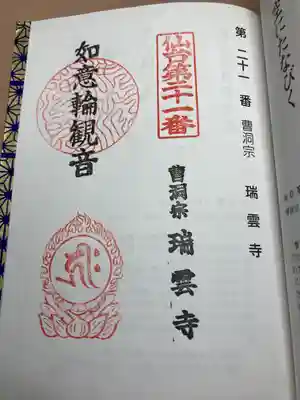 第二十一番 曹洞宗 瑞雲寺
仙台第二十一番
曹洞宗 瑞雲寺
如意輪観音